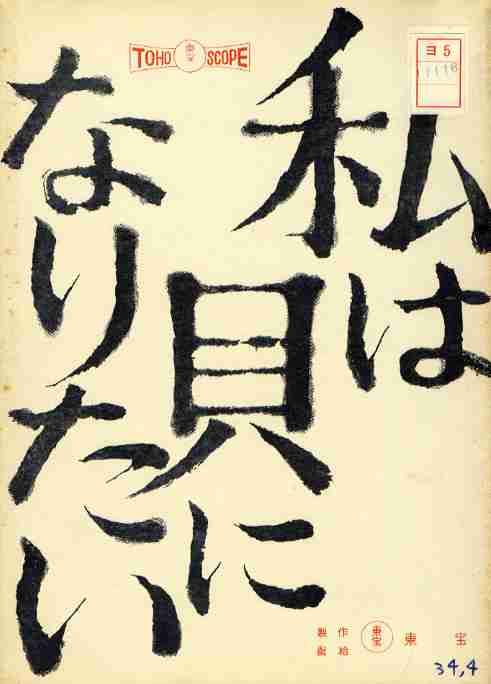 TOHO SCOPE
東宝
ヨ5
1118
私は
貝に
なりたい
製作
配給
東宝
東宝
34,4